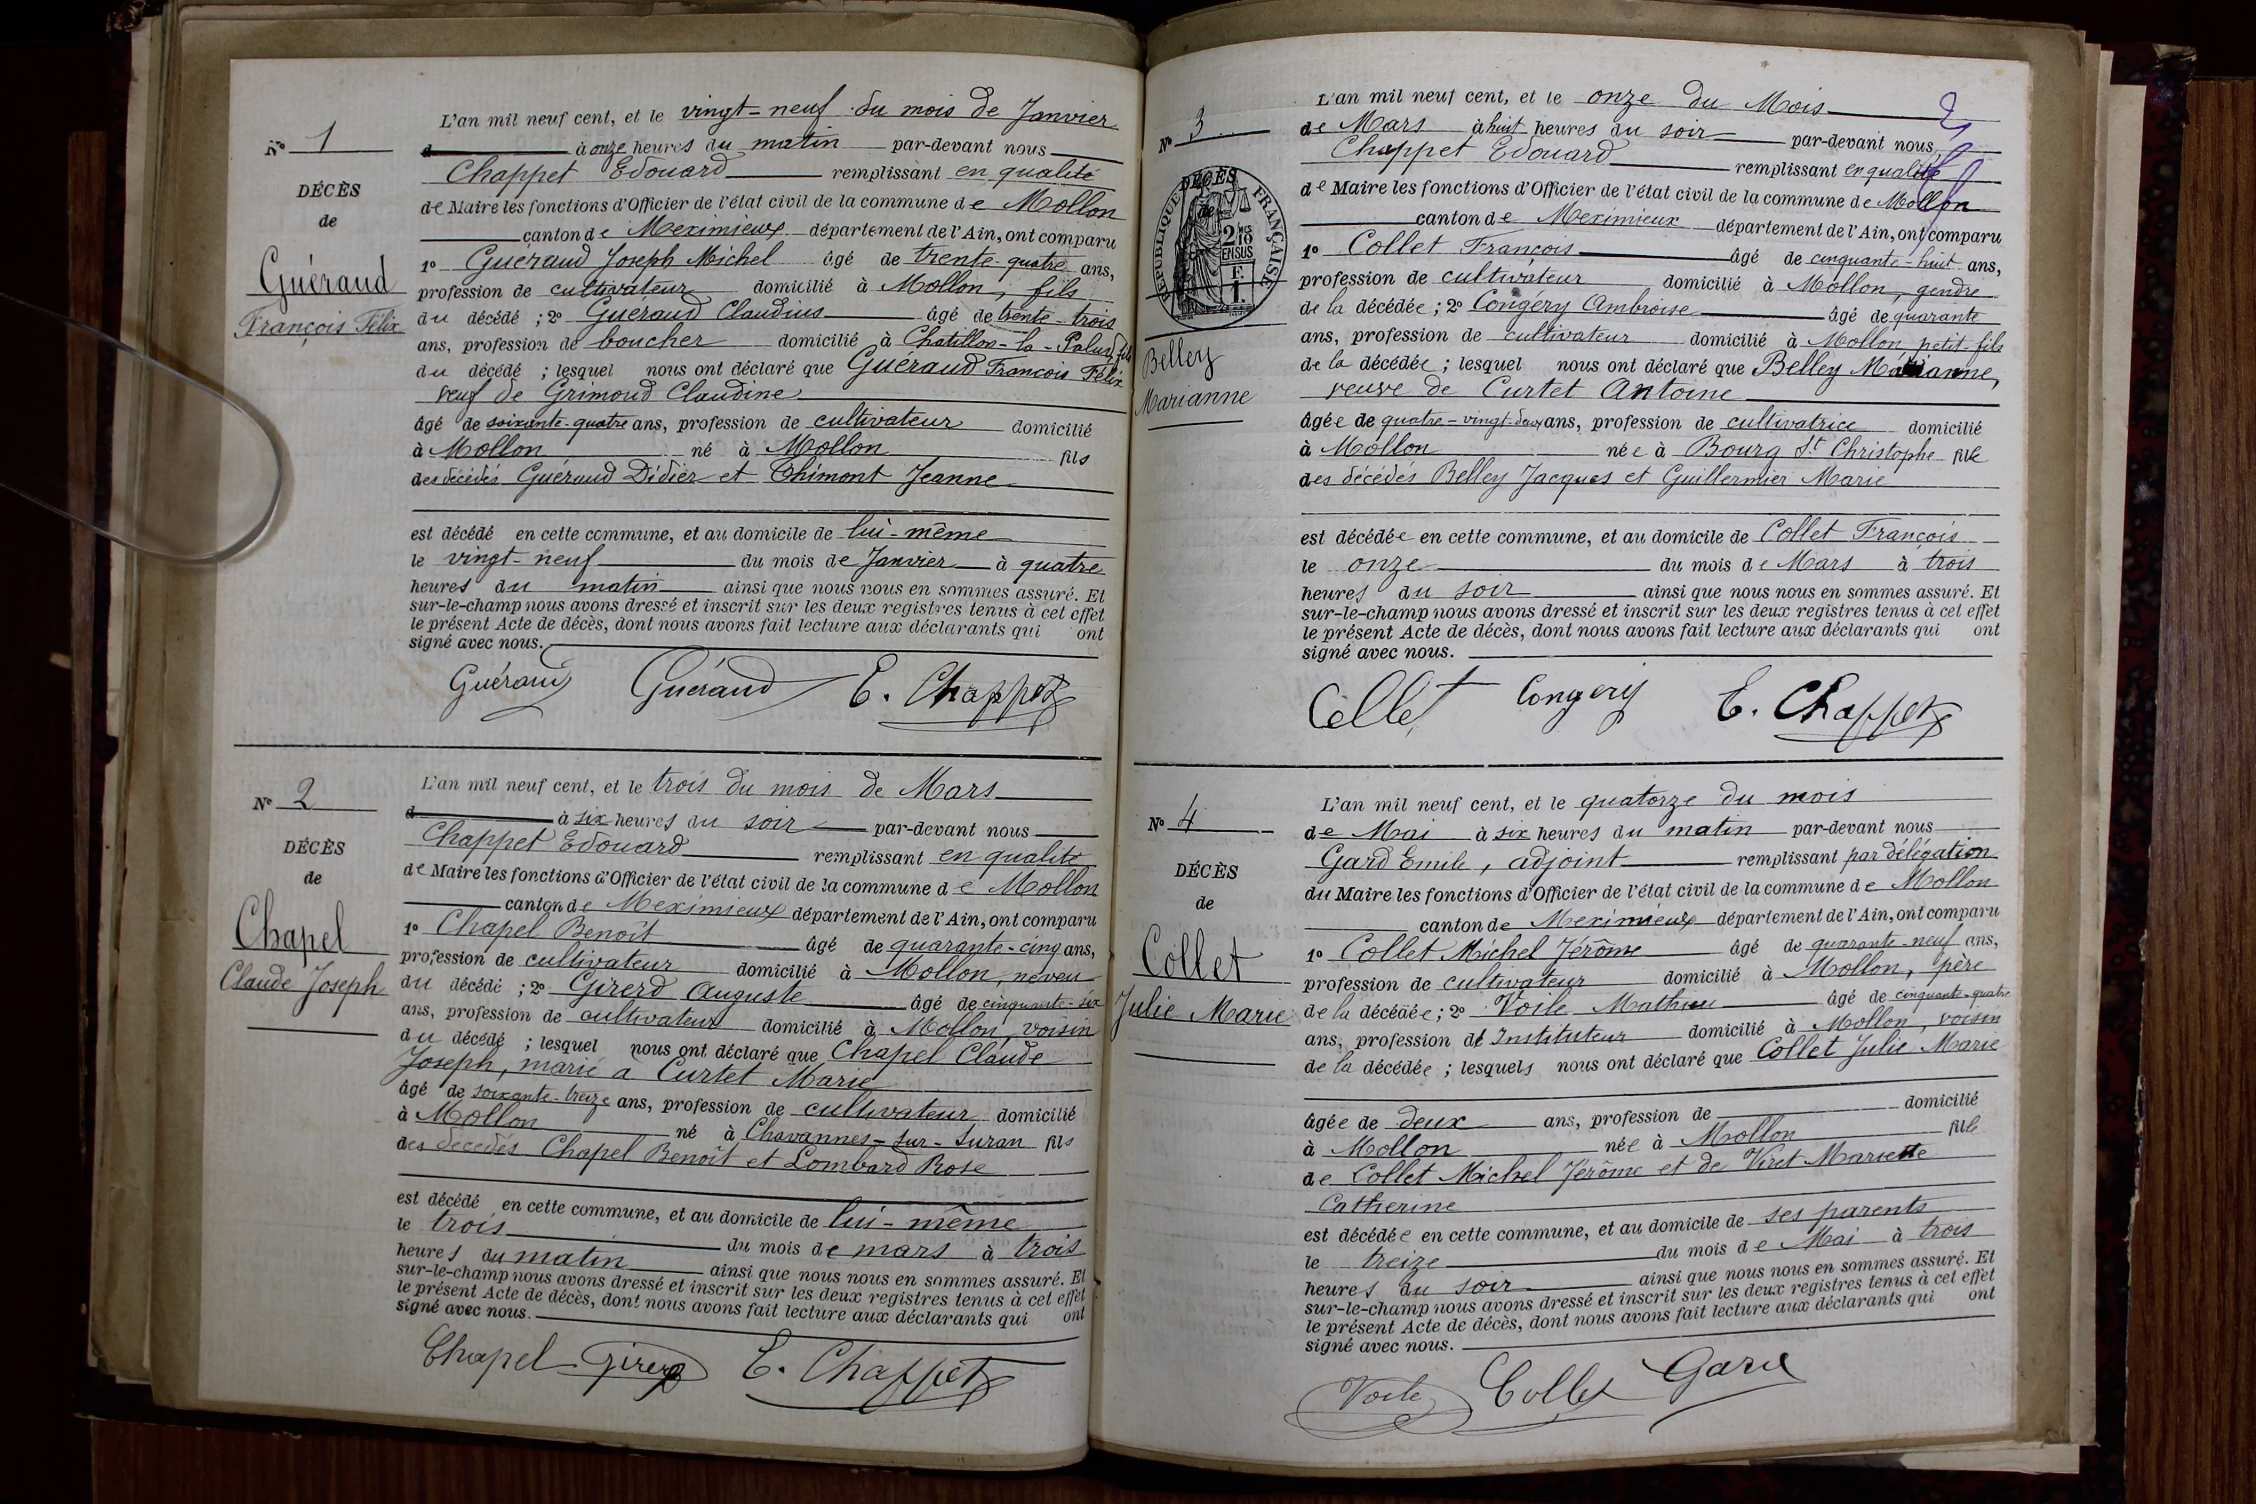 N° 1
DÉCÈS
de
Guéraud
François Félix
L'an mil neuf cent, et le vingt-neuf du mois de Janvier
d à onze heures du matin par-devant nous
Chappet Edouard remplissant en qualité
de Maire les fonctions d'Officier de l'état civil de la commune de Mollon
canton de Meximieux département de l'Ain, ont comparu
1° Guéraud Joseph Michel âgé de trente-quatre ans,
profession de cultivateur domicilié à Mollon, fils
du décédé ; 2° Guéraud Claudius âgé de trente-trois
ans, profession de boucher domicilié à Chatillon-la-Palud, fils
du décédé ; lesquel nous ont déclaré que Guéraud François Félix
veuf de Grimoud Claudine
âgé de soixante-quatre ans, profession de cultivateur domicilié
à Mollon né à Mollon fils
des décédés Guéraud Didier et Thimont Jeanne
est décédé en cette commune, et au domicile de lui-même
le vingt-neuf du mois de Janvier à quatre
heures du matin ainsi que nous nous en sommes assuré. Et
sur-le-champ nous avons dressé et inscrit sur les deux registres tenus à cet effet
le présent Acte de décès, dont nous avons fait lecture aux déclarants qui ont
signé avec nous.
Guéraud Guéraud E. Chappet
N° 2
DÉCÈS
de
Chapel
Claude Joseph
L'an mil neuf cent, et le trois du mois de Mars
d à six heures du soir par-devant nous
Chappet Edouard remplissant en qualité
de Maire les fonctions d'Officier de l'état civil de la commune de Mollon
canton de Meximieux département de l'Ain, ont comparu
1° Chapel Benoît âgé de quarante-cinq ans,
profession de cultivateur domicilié à Mollon, neveu
du décédé ; 2° Girerd Auguste âgé de cinquante-six
ans, profession de cultivateur domicilié à Mollon, voisin
du décédé ; lesquel nous ont déclaré que Chapel Claude
Joseph, marié à Curtet Marie
âgé de soixante-treize ans, profession de cultivateur domicilié
à Mollon né à Chavannes-sur-Suran fils
des décédés Chapel Benoît et Lombard Rose
est décédé en cette commune, et au domicile de lui-même
le trois du mois de mars à trois
heures du matin ainsi que nous nous en sommes assuré. Et
sur-le-champ nous avons dressé et inscrit sur les deux registres tenus à cet effet
le présent Acte de décès, dont nous avons fait lecture aux déclarants qui ont
signé avec nous.
Chapel Girerd E. Chappet
N° 3
DÉCÈS
de
RÉPUBLIQUE FRANÇAISE
2/10
EN SUS
Belley
Marianne
L'an mil neuf cent, et le onze du Mois
de Mars à huit heures du soir par-devant nous
Chappet Edouard remplissant en qualité
de Maire les fonctions d'Officier de l'état civil de la commune de Mollon
canton de Meximieux département de l'Ain, ont comparu
1° Collet François âgé de cinquante-huit ans,
profession de cultivateur domicilié à Mollon, gendre
de la décédée ; 2° Congéry Ambroise âgé de quarante
ans, profession de cultivateur domicilié à Mollon petit-fils
de la décédée ; lesquel nous ont déclaré que Belley Marianne,
veuve de Curtet Antoine
âgée de quatre-vingt-deux ans, profession de cultivatrice domicilié
à Mollon née à Bourg St Christophe fille
des décédés Belley Jacques et Guillermier Marie
est décédée en cette commune, et au domicile de Collet François
le onze du mois de Mars à trois
heures du soir ainsi que nous nous en sommes assuré. Et
sur-le-champ nous avons dressé et inscrit sur les deux registres tenus à cet effet
le présent Acte de décès, dont nous avons fait lecture aux déclarants qui ont
signé avec nous.
Collet Congery E. Chappet
N° 4
DÉCÈS
de
Collet
Julie Marie
L'an mil neuf cent, et le quatorze du mois
de Mai à six heures du matin par-devant nous
Gard Emile, adjoint remplissant par délégation
du Maire les fonctions d'Officier de l'état civil de la commune de Mollon
canton de Meximieux département de l'Ain, ont comparu
1° Collet Michel Jérôme âgé de quarante-neuf ans,
profession de cultivateur domicilié à Mollon, père
de la décédée ; 2° Voile Mathieu âgé de cinquante-quatre
ans, profession d'Instituteur domicilié à Mollon, voisin
de la décédée ; lesquels nous ont déclaré que Collet Julie Marie
âgée de deux ans, profession de domicilié
à Mollon née à Mollon fille
de Collet Michel Jérôme et de Viret Mariette
Catherine
est décédée en cette commune, et au domicile de ses parents
le treize du mois de Mai à trois
heures du soir ainsi que nous nous en sommes assuré. Et
sur-le-champ nous avons dressé et inscrit sur les deux registres tenus à cet effet
le présent Acte de décès, dont nous avons fait lecture aux déclarants qui ont
signé avec nous.
Voile Collet Gard